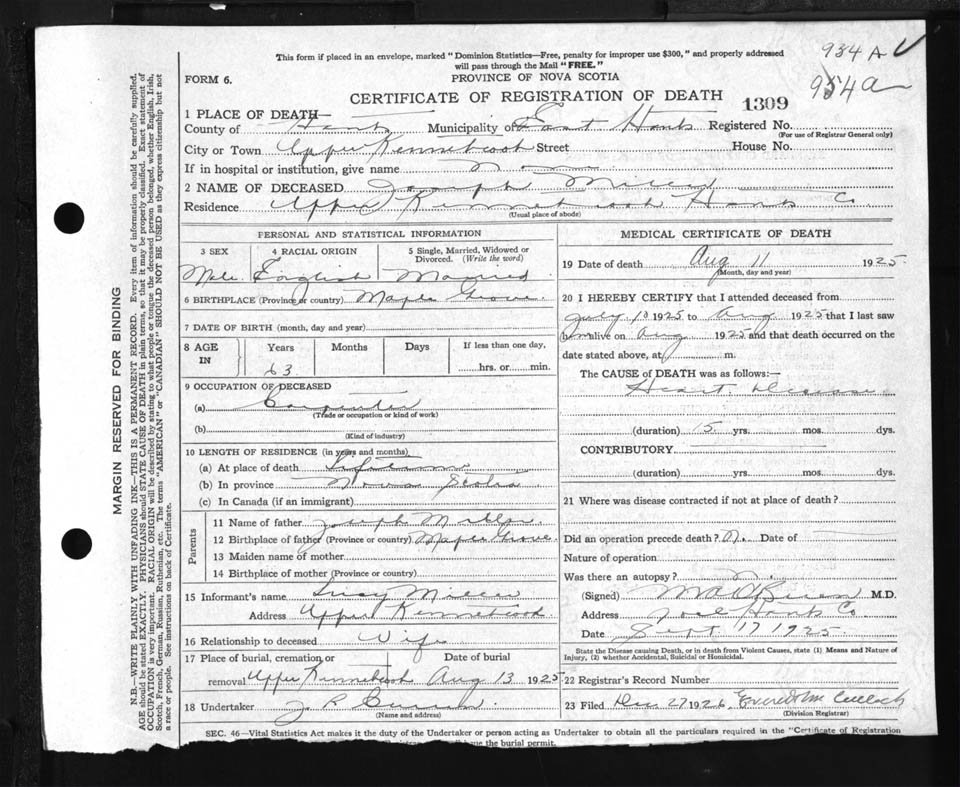 934 A
954a
This form if placed in an envelope, marked "Dominion Statistics—Free, penalty for improper use $300," and properly addressed
will pass through the Mail "FREE."
FORM 6.
PROVINCE OF NOVA SCOTIA
CERTIFICATE OF REGISTRATION OF DEATH 1309
1 PLACE OF DEATH—
County of Hants Municipality of East Hants Registered No.
(For use of Registrar General only)
City or Town Upper Kennetcook Street House No.
If in hospital or institution, give name No
2 NAME OF DECEASED Joseph Miller
Residence Upper Kennetcook Hants Co
(Usual place of abode)
PERSONAL AND STATISTICAL INFORMATION
3 SEX 4 RACIAL ORIGIN 5 Single, Married, Widowed or
Divorced. (Write the word)
Male English Married
6 BIRTHPLACE (Province or country) Maple Grove
7 DATE OF BIRTH (month, day and year)
8 AGE IN Years Months Days If less than one day,
63 hrs. or min.
9 OCCUPATION OF DECEASED
(a) Carpenter
(Trade or occupation or kind of work)
(b)
(Kind of industry)
10 LENGTH OF RESIDENCE (in years and months)
(a) At place of death Lifetime
(b) In province Nova Scotia
(c) In Canada (if an immigrant)
Parents
11 Name of father Joseph Miller
12 Birthplace of father (Province or country) Maple Grove
13 Maiden name of mother
14 Birthplace of mother (Province or country)
15 Informant's name Lucy Miller
Address Upper Kennetcook
16 Relationship to deceased Wife
17 Place of burial, cremation or Date of burial
removal Upper Kennetcook Aug 13 1925
18 Undertaker
(Name and address)
MEDICAL CERTIFICATE OF DEATH
19 Date of death Aug 11 1925
(Month, day and year)
20 I HEREBY CERTIFY that I attended deceased from
July 1925 to Aug 1925 that I last saw
him alive on Aug 1925 and that death occurred on the
date stated above, at m.
The CAUSE of DEATH was as follows:—
Heart Disease
(duration) 15 yrs. mos. dys.
CONTRIBUTORY
(duration) yrs. mos. dys.
21 Where was disease contracted if not at place of death?
Did an operation precede death? No Date of
Nature of operation
Was there an autopsy? No
(Signed) M.D.
Address Noel Hants Co
Date Sept 17 1925
State the Disease causing Death, or in death from Violent Causes, state (1) Means and Nature of
Injury, (2) whether Accidental, Suicidal or Homicidal.
22 Registrar's Record Number
23 Filed Dec 27 1926
(Division Registrar)
SEC. 46—Vital Statistics Act makes it the duty of the Undertaker or person acting as Undertaker to obtain all the particulars required in the "Certificate of Registration
the burial permit.
MARGIN RESERVED FOR BINDING
N.B.—WRITE PLAINLY WITH UNFADING INK—THIS IS A PERMANENT RECORD. Every item of information should be carefully supplied.
AGE should be stated EXACTLY. PHYSICIANS should STATE CAUSE OF DEATH in plain terms, so that it may be properly classified. Exact statement of
OCCUPATION is very important. RACIAL ORIGIN will be described by stating to what people or tongue the deceased person belonged, whether English, Irish,
Scotch, French, German, Russian, Ruthenian, etc. The terms "AMERICAN" or "CANADIAN" SHOULD NOT BE USED as they express citizenship but not
a race or people. See instructions on back of Certificate.